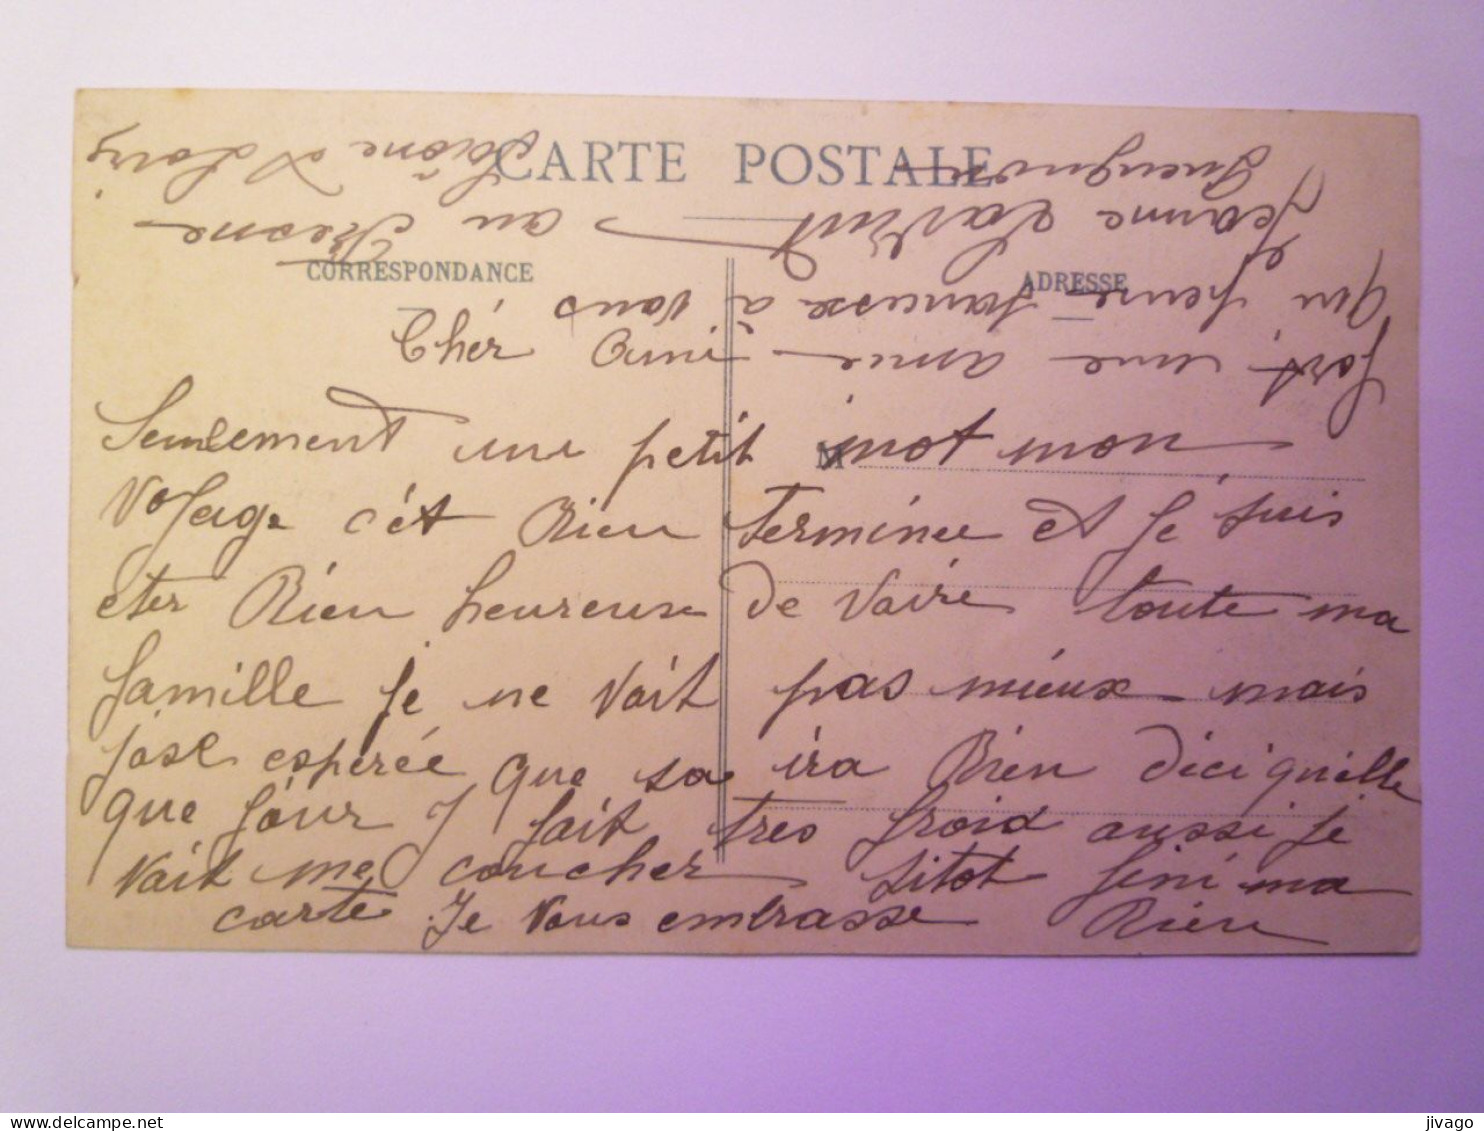 CARTE POSTALE
CORRESPONDANCE
ADRESSE
M
Chér Ami
Seulement un petit mot mon
Voyage c'ét Bien Terminée et Je suis
eter Bien heureuse de Voire toute ma
famille je ne Vait pas mieux mais
jose esperée que sa ira Bien dici quélle
que jour I fait tres froid aussi je
Vait me coucher sitot fini ma
carte Je Vous embrasse Bien
fort, une amie
qui pense toujours à Vous
Jeanne
au
Gueugnon Saône & Loire
delcampe.net
jivago